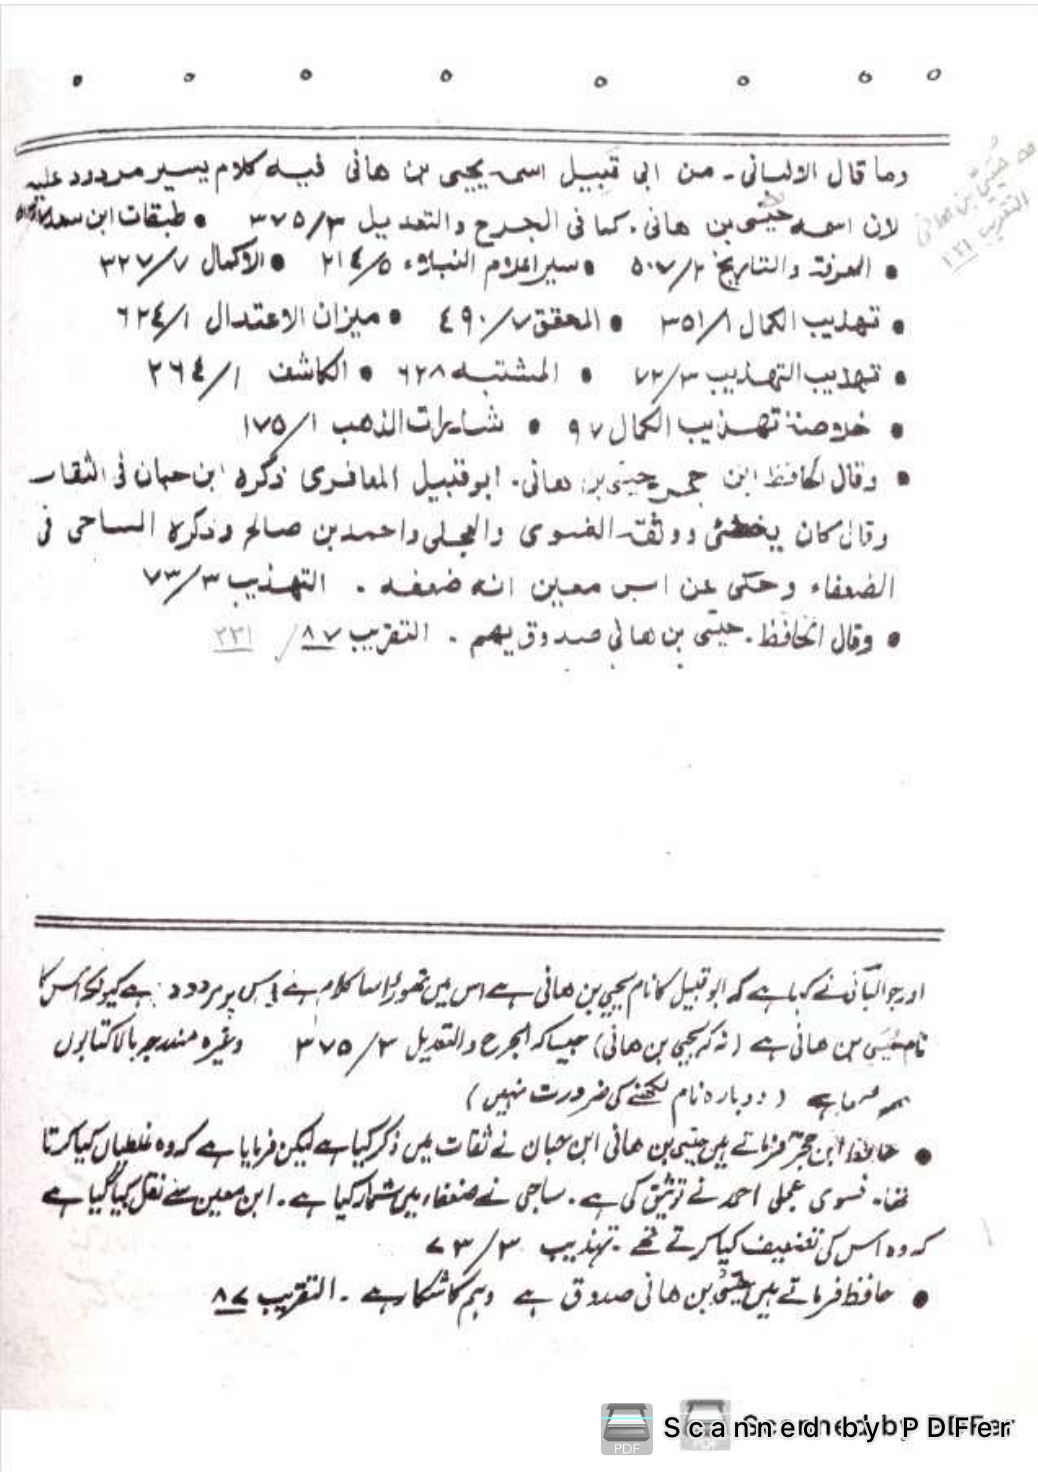 وما قال الالبانی۔ من ابی قبیل اسمہ یحییٰ بن ھانی فیہ کلام یسیر مردود علیہ
لان اسمہ حیّی بن ھانی۔ کما فی الجرح والتعدیل ٣/٣٧٥ • طبقات ابن سعد
• المعرفة والتاریخ ٢/٥٠٧ • سیر اعلام النبلاء ٥/٢١٤ • الاکمال ٧/٣٢٧
• تهذیب الکمال ١/٣٥١ • المحقق ٧/٤٩٠ • میزان الاعتدال ١/٦٢٤
• تهذیب التهذیب ٣/٧٢ • المشتبه ٦٢٨ • الکاشف ١/٢٦٤
• خلاصة تهذیب الکمال ٩٧ • شذرات الذهب ١/١٧٥
• وقال الحافظ ابن حجر حیّی بن ھانی۔ ابو قبیل المعافری ذکرہ ابن حبان فی الثقات
وقال کان یخطئ ووثقہ الفسوی والعجلی واحمد بن صالح وذکرہ الساجی فی
الضعفاء وحکی عن ابن معین انه ضعفه۔ التهذیب ٣/٧٣
• وقال الحافظ۔ حیّی بن ھانی صدوق یهم۔ التقریب ٨٧/
حیّی بن ھانی
التقریب
اور جو البانی نے کہا ہے کہ ابو قبیل کا نام یحییٰ بن ھانی ہے اس میں تھوڑا سا کلام ہے اس پر مردود ہے کیونکہ اس کا
نام حیّی بن ھانی ہے (نہ کہ یحییٰ بن ھانی) جیسا کہ الجرح والتعدیل ٣/٣٧٥ وغیرہ مندرجہ بالا کتابوں
ہے (دوبارہ نام لکھنے کی ضرورت نہیں)
• حافظ ابن حجر فرماتے ہیں حیّی بن ھانی ابن حبان نے ثقات میں ذکر کیا ہے لیکن فرمایا ہے کہ وہ غلطیاں کیا کرتا
تھا۔ فسوی عجلی احمد نے توثیق کی ہے۔ ساجی نے ضعفاء میں شمار کیا ہے۔ ابن معین سے نقل کیا گیا ہے
کہ وہ اس کی تضعیف کیا کرتے تھے۔ تہذیب ٣/٧٣
• حافظ فرماتے ہیں حیّی بن ھانی صدوق ہے وہم کا شکار ہے۔ التقریب ٨٧
Scanned by PDFer